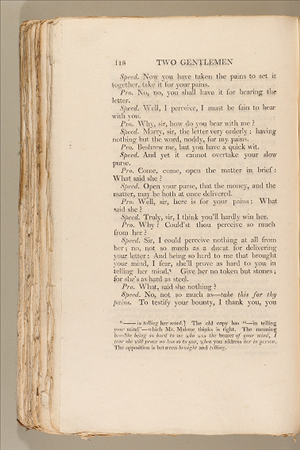 118 TWO GENTLEMEN
Speed. Now you have taken the pains to set it
together, take it for your pains.
Pro. No, no, you shall have it for bearing the
letter.
Speed. Well, I perceive, I must be fain to bear
with you.
Pro. Why, sir, how do you bear with me?
Speed. Marry, sir, the letter very orderly; having
nothing but the word, noddy, for my pains.
Pro. Beshrew me, but you have a quick wit.
Speed. And yet it cannot overtake your slow
purse.
Pro. Come, come, open the matter in brief:
What said she?
Speed. Open your purse, that the money, and the
matter, may be both at once delivered.
Pro. Well, sir, here is for your pains: What
said she?
Speed. Truly, sir, I think you'll hardly win her.
Pro. Why? Could'st thou perceive so much
from her?
Speed. Sir, I could perceive nothing at all from
her; no, not so much as a ducat for delivering
your letter: And being so hard to me that brought
your mind, I fear, she'll prove as hard to you in
telling her mind. Give her no token but stones;
for she's as hard as steel.
Pro. What, said she nothing?
Speed. No, not so much as—take this for thy
pains. To testify your bounty, I thank you, you
—— in telling her mind.] The old copy has "—in telling
your mind"—which Mr. Malone thinks is right. The meaning
is—She being so hard to me who was the bearer of your mind, I
fear she will prove no less so to you, when you address her in person.
The opposition is between brought and telling.